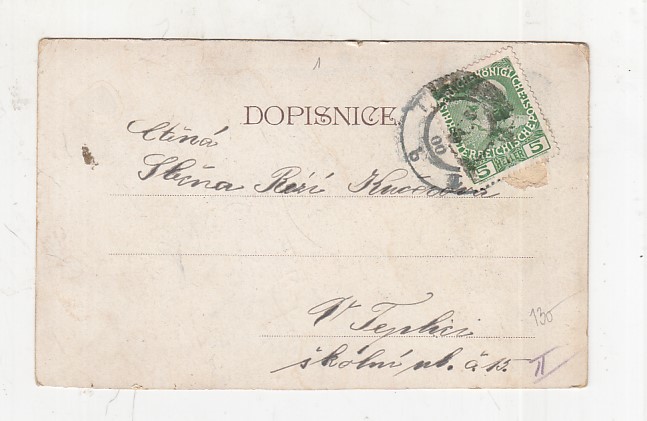 1
DOPISNICE.
KÖNIGLICHE
ÖSTERREICHISCHE
5 HELLER 5
Ctěná
Slečna Réзі Kučerova
V Teplici
130
školní ul. č 15.
II